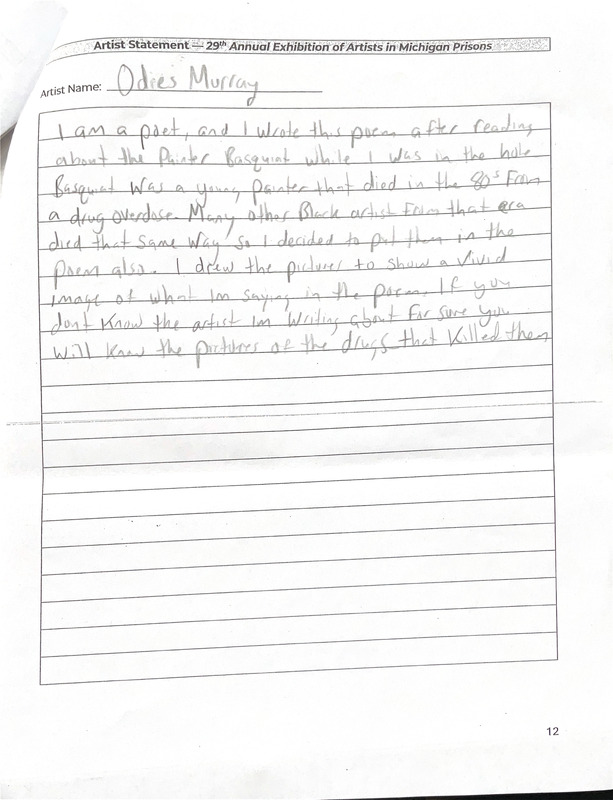 Artist Statement — 29th Annual Exhibition of Artists in Michigan Prisons
Artist Name: Odies Murray
I am a poet, and I wrote this poem after reading
about the Painter Basquiat while I was in the hole
Basquiat was a young painter that died in the 80s From
a drug overdose. Many other Black artist from that era
died that same way so I decided to put them in the
poem also. I drew the pictures to show a vivid
image of what Im saying in the poem. If you
dont know the artist Im writing about for sure you
will know the pictures of the drugs that killed them
12